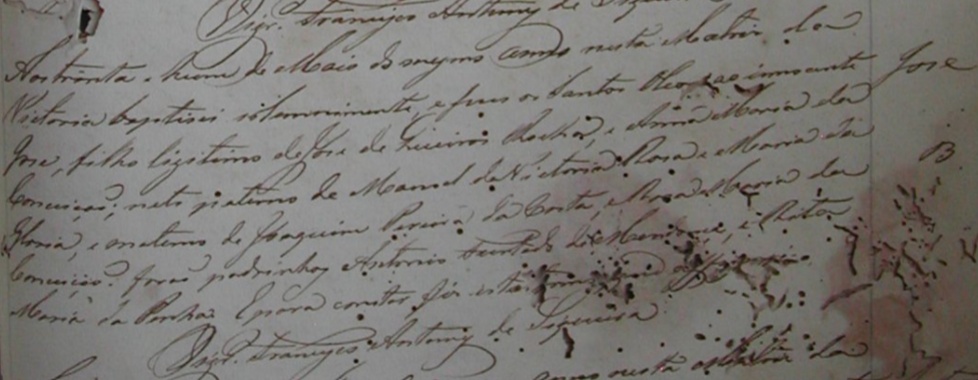 Vigr. Francisco Antunes de Siqueira
Aos trinta e hum de Maio do mesmo anno nesta Matriz da
Victoria baptisei solemnimente, e pus os Santos Oleos ao innocente
José
José, filho ligitimo de José de Queiros Rocha, e Anna Maria da
Conceição; neto paterno de Manoel da Victoria Rosa e Maria da
B
Gloria, e materno de Joaquim Pereira da Costa, e Rosa Maria da
Conceição. Forão padrinhos Antonio Furtado de Mendonça, e Rita
Maria da Penha. E para constar fiz este
Vigr. Francisco Antunes de Siqueira
anno nesta Matriz da